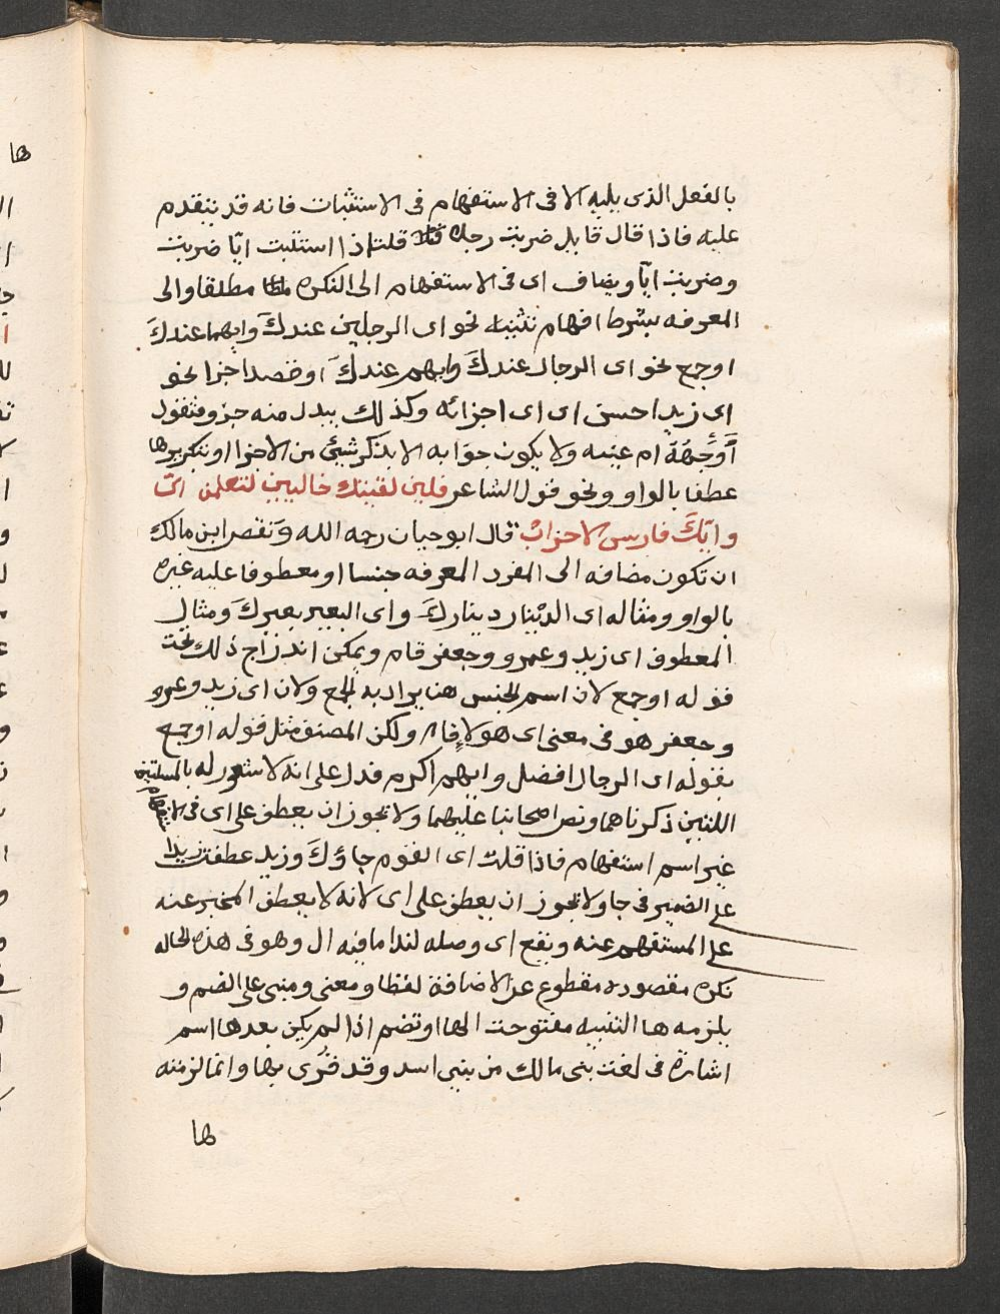 بالفعل الذى يليه الا فى الاستفهام فى الاستثبات فانه قد يتقدم
عليه فاذا قال قايل ضربت رجلا قلت اذا استثبت ايّا ضربت
وضربت ايّا ويضاف اى فى الاستفهام الى النكره مطلقا والى
المعرفه بشرط افهام تثنيه نحو اى الرجلين عندكَ وايهما عندكَ
او جمع نحو اى الرجال عندكَ وايهم عندكَ او قصد اجزا نحو
اى زيد احسن اى اى اجزائه وكذلك يبدل منه جزو فتقول
أَوَجْهَهُ ام عينه ولا يكون جوابه الا بذكر شيئ من الاجزا او بتكريرها
عطفا بالواو ونحو قول الشاعر فلين لقيتك خاليين لتعلمن ايّ
وايّكَ فارس الاحزابْ قال ابو حيان رحمه الله وَنقص ابن مالك
ان تكون مضافه الى المفرد المعرفه جنسا او معطوفا عليه غيره
بالواو ومثاله اى الديْنار ديناركَ واى البعير بعيركَ ومثال
المعطوف اى زيد وعمرو وجعفر قام ويمكن اندراج ذلك تحت
قوله او جمع لان اسم الجنس هنا يراد به الجمع ولان اى زيد وعمرو
وجعفر هو فى معنى اى هولا قام ولكن المصنف مثل قوله او جمع
بقوله اى الرجال افضل وايهم اكرم فدل على انه لا شعور له بالمسلتين
اللتين ذكرناهما ونص اصحابنا عليهما ولا تجوز ان يعطف على اى فى الاستفهام
غير اسم استفهام فاذا قلت اى القوم جاؤكَ وزيد عطفت زيدا
على الضمير فى جا ولا تجوز ان يعطف على اى لانه لا يعطف المخبر عنه
على المستفهم عنه ويقع اى وصله لندا ما فيه ال وهو فى هذه الحاله
نكره مقصوده مقطوع عن الاضافة لفظا ومعنى ومبنى على الضم و
يلزمه ها التنبيه مفتوحت الها او تضم اذا لم يكن بعدها اسم
اشارة فى لغت بنى مالك من بنيى اسد وقد قرى بها وانما لزمته
ها